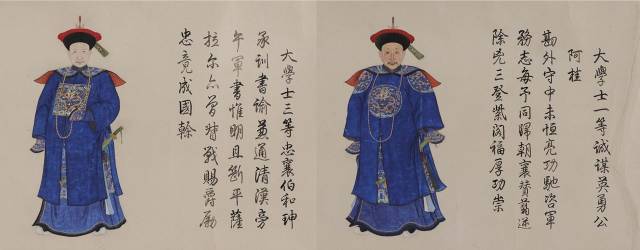 大學士一等誠謀英勇公
阿桂
勘外守中未恒亮功馳咨軍
務志每予同歸朝襄贊翦逆
除兇三登紫閣福厚功崇
大學士三等忠襄伯和珅
承訓書諭兼通清漢旁
午軍書惟明且斷平薩
拉尔亦曾督戰賜爵勵
忠竟成國榦